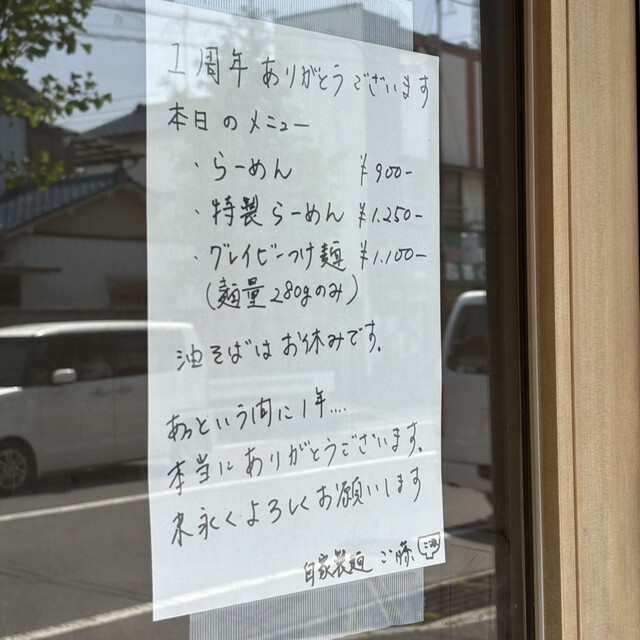 1周年ありがとうございます
本日のメニュー
・らーめん ¥900-
・特製らーめん ¥1.250-
・グレイビーつけ麺 ¥1.100-
(麺量280gのみ)
油そばはお休みです。
あっという間に1年....
本当にありがとうございます。
末永くよろしくお願いします
自家製麺 ご藤